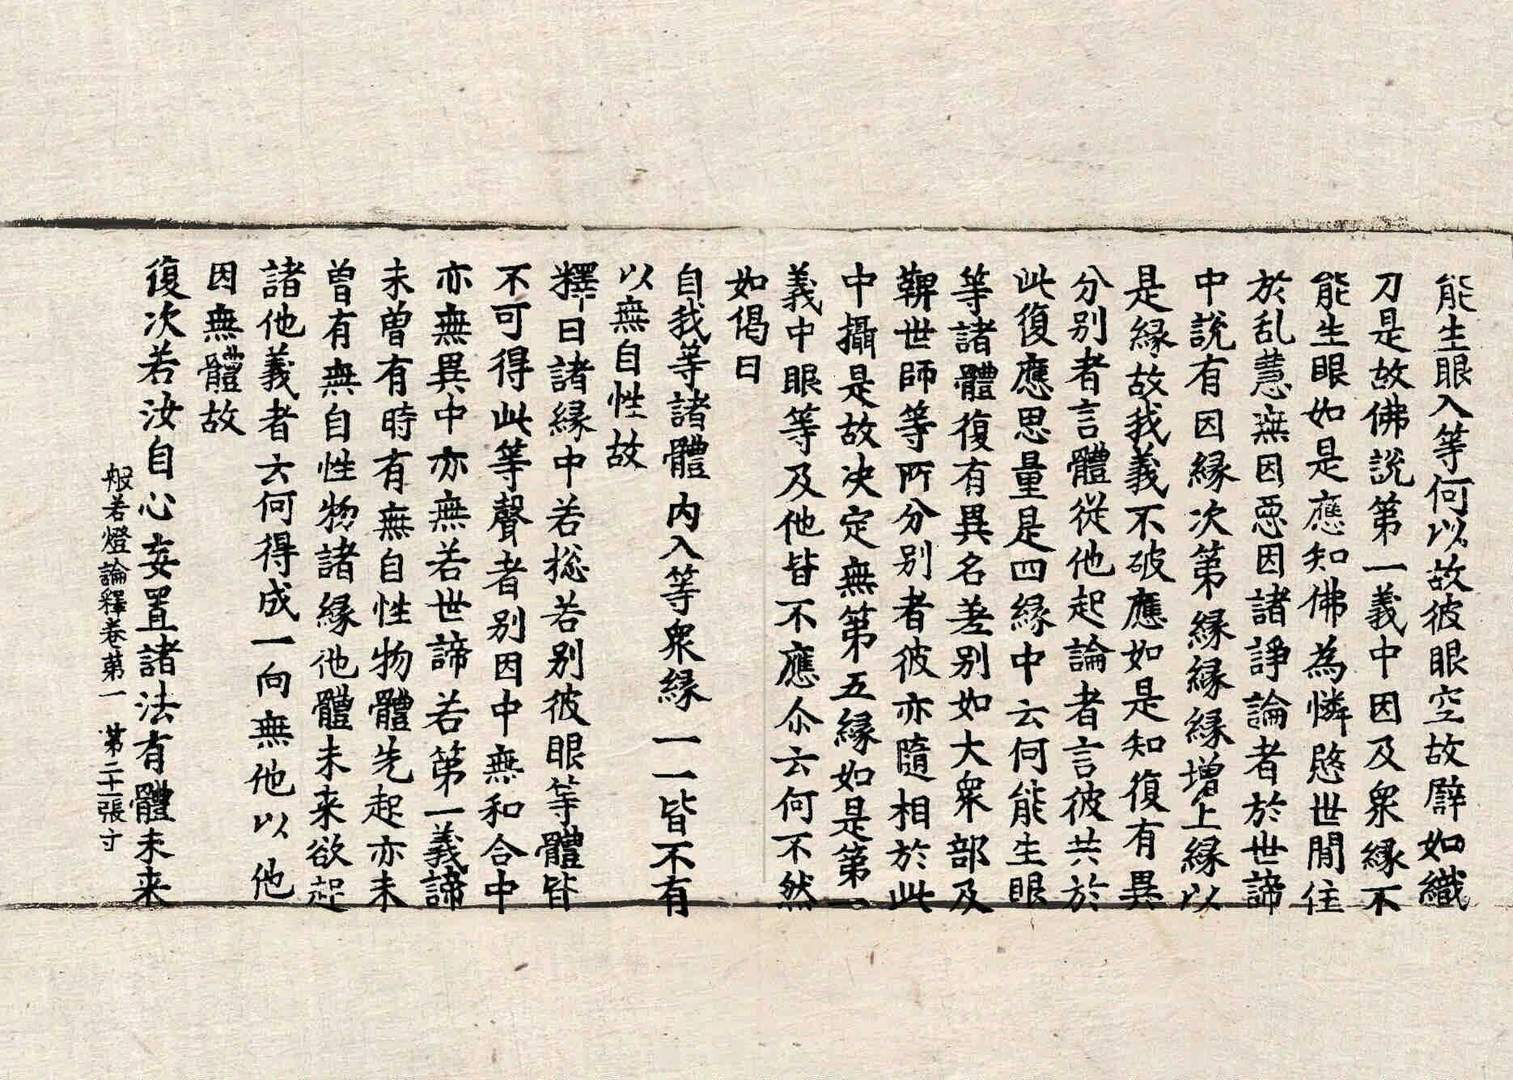 能生眼入等何以故彼眼空故譬如織
刀是故佛說第一義中因及衆緣不
能生眼如是應知佛為憐愍世間住
於乱慧無因惡因諸諍論者於世諦
中說有因緣次第緣緣緣增上緣以
是緣故我義不破應如是知復有異
分別者言體從他起論者言彼共於
此復應思量是四緣中云何能生眼
等諸體復有異名差別如大衆部及
鞞世師等所分別者彼亦隨相於此
中攝是故决定無第五緣如是第一
義中眼等及他皆不應尒云何不然
如偈曰
自我等諸體內入等衆緣一一皆不有
以無自性故
釋曰諸緣中若揔若別彼眼等體皆
不可得此等聲者別因中無和合中
亦無異中亦無若世諦若第一義諦
未曽有時有無自性物體先起亦未
曽有無自性物諸緣他體未来欲起
諸他義者云何得成一向無他以他
因無體故
復次若汝自心妄置諸法有體未来
般若燈論釋卷第一 第二十一張寸